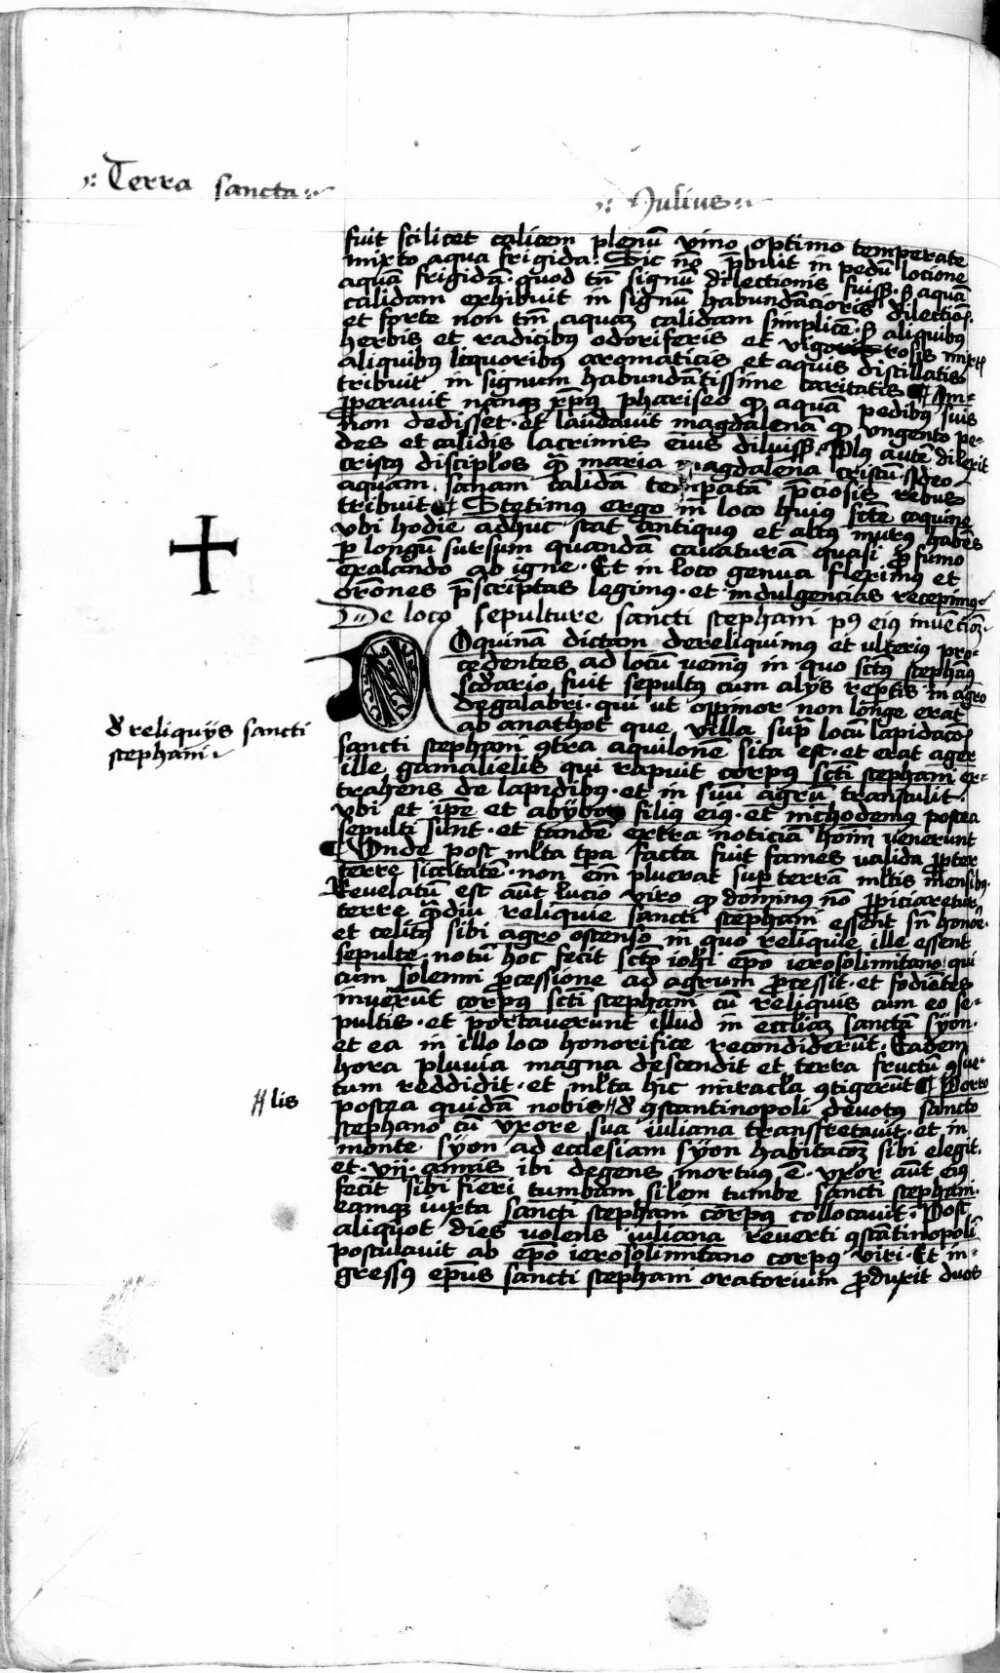 Terra sancta
Julius
fuit scilicet calicem plenū vino optimo temperate
mixto aqua frigida. Sic nō p̄buit in pedū locione
aquā frigidā. quod tn̄ signū dilectionis fuiss3. s3 aquā
calidam exhibuit in signū habundācioris dilectiōis.
et forte non tm̄ aquaʒ calidam simplicē. s3 aliquibꝰ
herbis et radicibꝰ odoriferis et vigorosis mixt
aliquibꝰ liquoribꝰ aromaticis et aquis distillatis
tribuit in signum habundātissime caritatis ¶ Im-
ꝓperavit nanqꝫ xp̄ꝰ phariseo qꝫ aquā pedibꝰ suis
non dedisset. et laudavit magdalenā qꝫ vngento pe-
des et calidis lacrimis eius diluiss3. Plꝰ autē dilexit
cristꝰ discipl̄os qꝫ maria magdalena cristū. Ideo
aquam sanam calidā temperatā p̄ciosis rebus
tribuit ¶ Stetimꝰ ergo in loco huiꝰ sctē coquine
vbi hodie adhuc stat antiquus et altꝰ murꝰ habēs
p longū sursum quandā cavaturā quasi ꝓ fumo
exalando ab igne. Et in loco genua fleximꝰ et
orōnes p̄scriptas legimꝰ. et indulgencias recepimꝰ
De loco sepulture sancti stephani pꝰ eiꝰ invēcionē
Coquinā dictam dereliquimꝰ et ulteriꝰ pro-
cedentes ad locū venimꝰ in quo sctꝰ stephanꝰ
scd̄ario fuit sepultꝰ cum alijs reptis in agro
degalabri. qui ut opinor non longe erat
ab anathot que villa supͣ locū lapidacōis
sancti stephani ꝯtra aquilonē sita est. et erat ager
ille gamalielis qui rapuit corpꝰ scti stephani ex-
trahens de lapidibꝰ. et in suū agrū transtulit.
vbi et ip̄e et abybon filiꝰ eiꝰ. et nichodemꝰ postea
sepulti sunt. et tandē extra noticiā hoīm venerunt
¶ Vnde post ml̄ta tp̄a facta fuit fames valida ꝓpter
terre siccitatē. non em̄ pluerat sup terrā ml̄tis mensibꝰ.
Revelatū est aūt lucio viro qꝫ dominus nō ꝓpiciaretur
terre qͣdiu reliquie sancti stephani essent sn̄ honōe.
et celitꝰ sibi agro ostenso in quo reliquie ille essent
sepulte. notū hoc fecit scto ioh̄i ep̄o ierosolimitano. qui
cum solenni ꝓcessione ad agrum ꝓcessit. et fodiētes
invērūt corpꝰ scti stephani cū reliquis cum eo se-
pultis. et portaverunt illud in eccl̄iaʒ sanctā syon.
et ea in illo loco honorifice recondiderūt. Eadem
hora pluvia magna descendit et terra fructū ꝯsue-
tum reddidit. et ml̄ta hic miracl̄a ꝯtigerūt ¶ Porro
postea quidā nobis// d̄ ꝯstantinopoli devotꝰ sancto
stephano cū vxore sua iuliana transfretavit. et in
monte syon ad ecclesiam syon habitacōʒ sibi elegit.
et .vij. annis ibi degens mortuꝰ ē. vxor aūt eiꝰ
fecit sibi fieri tumbam sil̄em tumbe sancti stephani.
eamqꝫ iuxta sancti stephani corpꝰ collocavit. Post
aliquot dies volens iuliana reverti ꝯstātinopoli
postulavit ab ep̄o ierosolimitano corpꝰ viri. Et in-
gressꝰ ep̄us sancti stephani oratorium ꝓduxit duos
d̄ reliquijs sancti
stephani
// lis